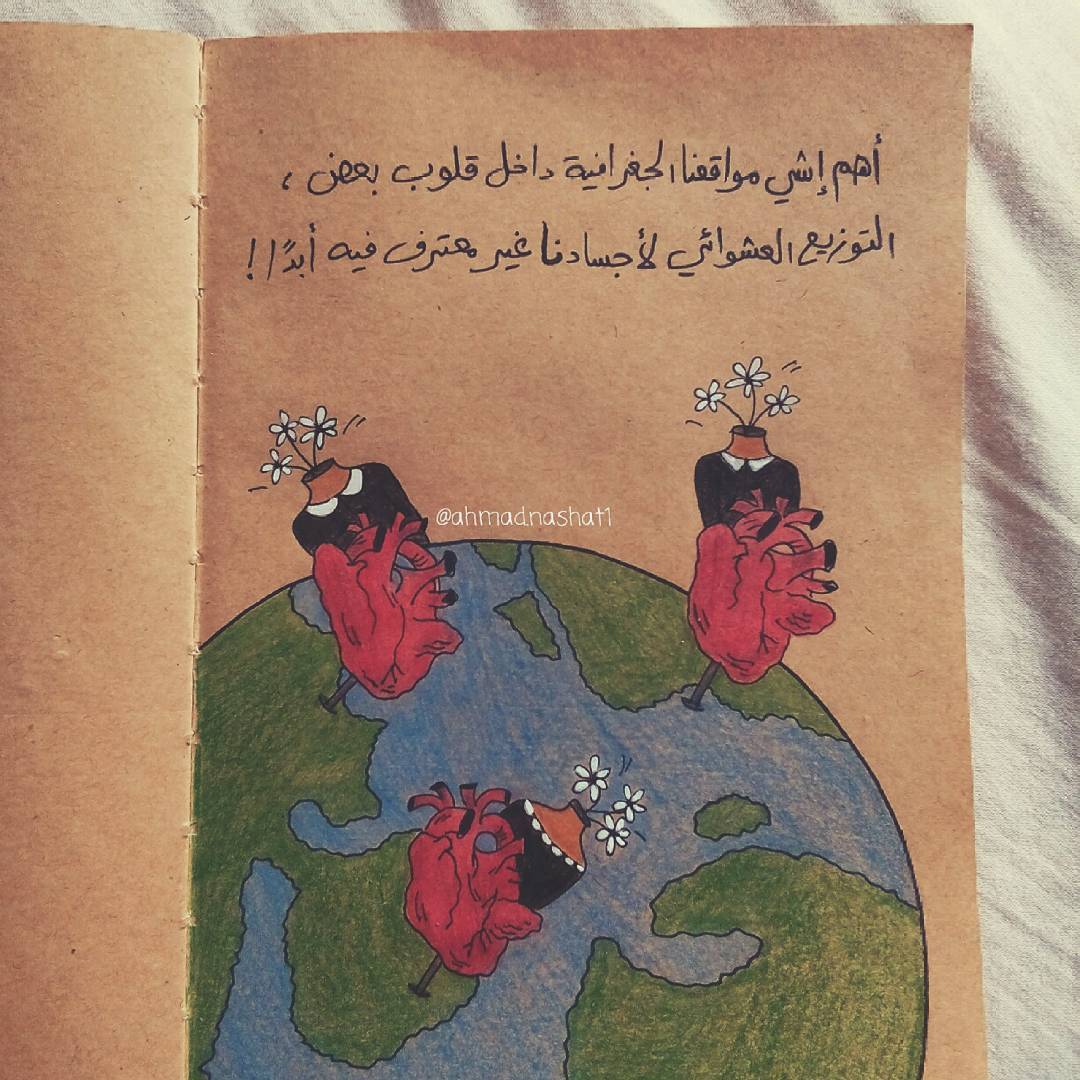 أهم إشي مواقعنا الجغرافية داخل قلوب بعض ،
التوزيع العشوائي لأجسادنا غير معترف فيه أبدًا !
@ahmadnashat1